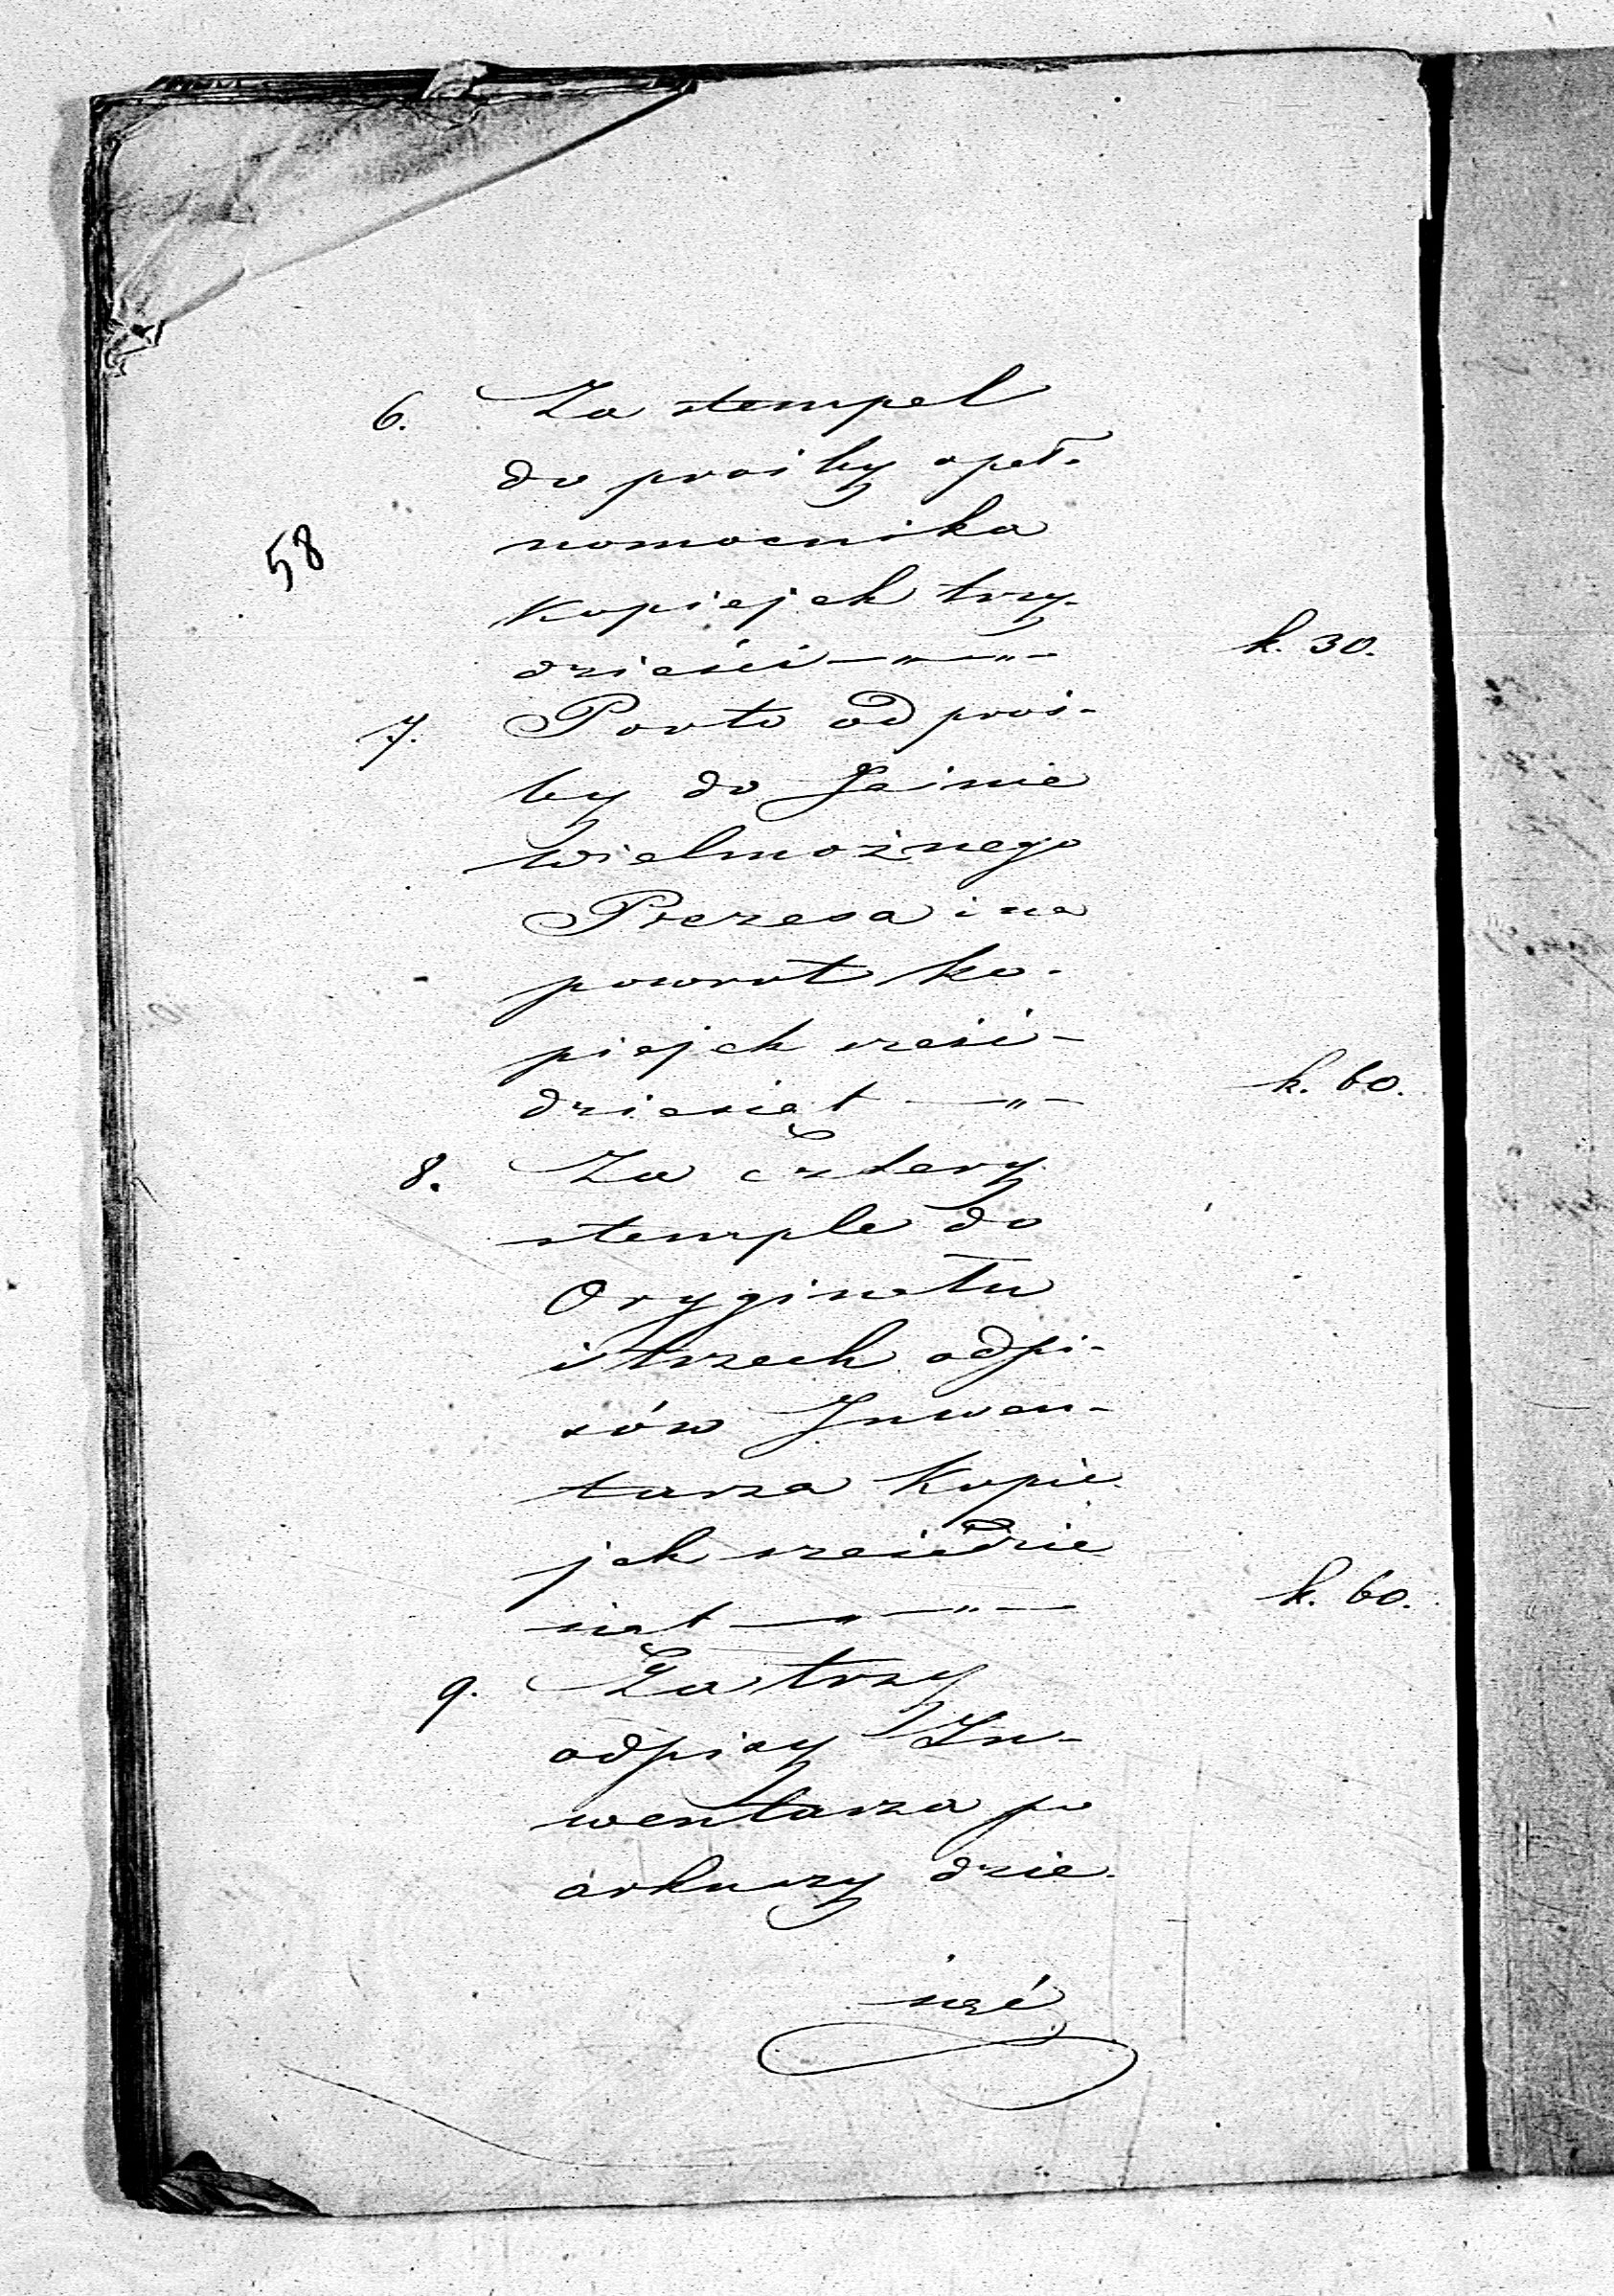 6. Za stempel
do prośby o peł-
nomocnika
Kopiejek trzy-
dzieści —„—„—
k. 30.
58
7. Porto od proś-
by do Jaśnie
Wielmożnego
Prezesa i na
powrot ko-
piejek sześć-
dziesiąt —„—
k. 60.
8. Za cztery
stemple do
Oryginału
i trzech odpi-
sów Inwen-
tarza Kopie-
jek sześćdzie
siąt —„—„—
k. 60.
9. Za trzy
odpisy In-
wentarza po
arkuszy dzie-
sięć